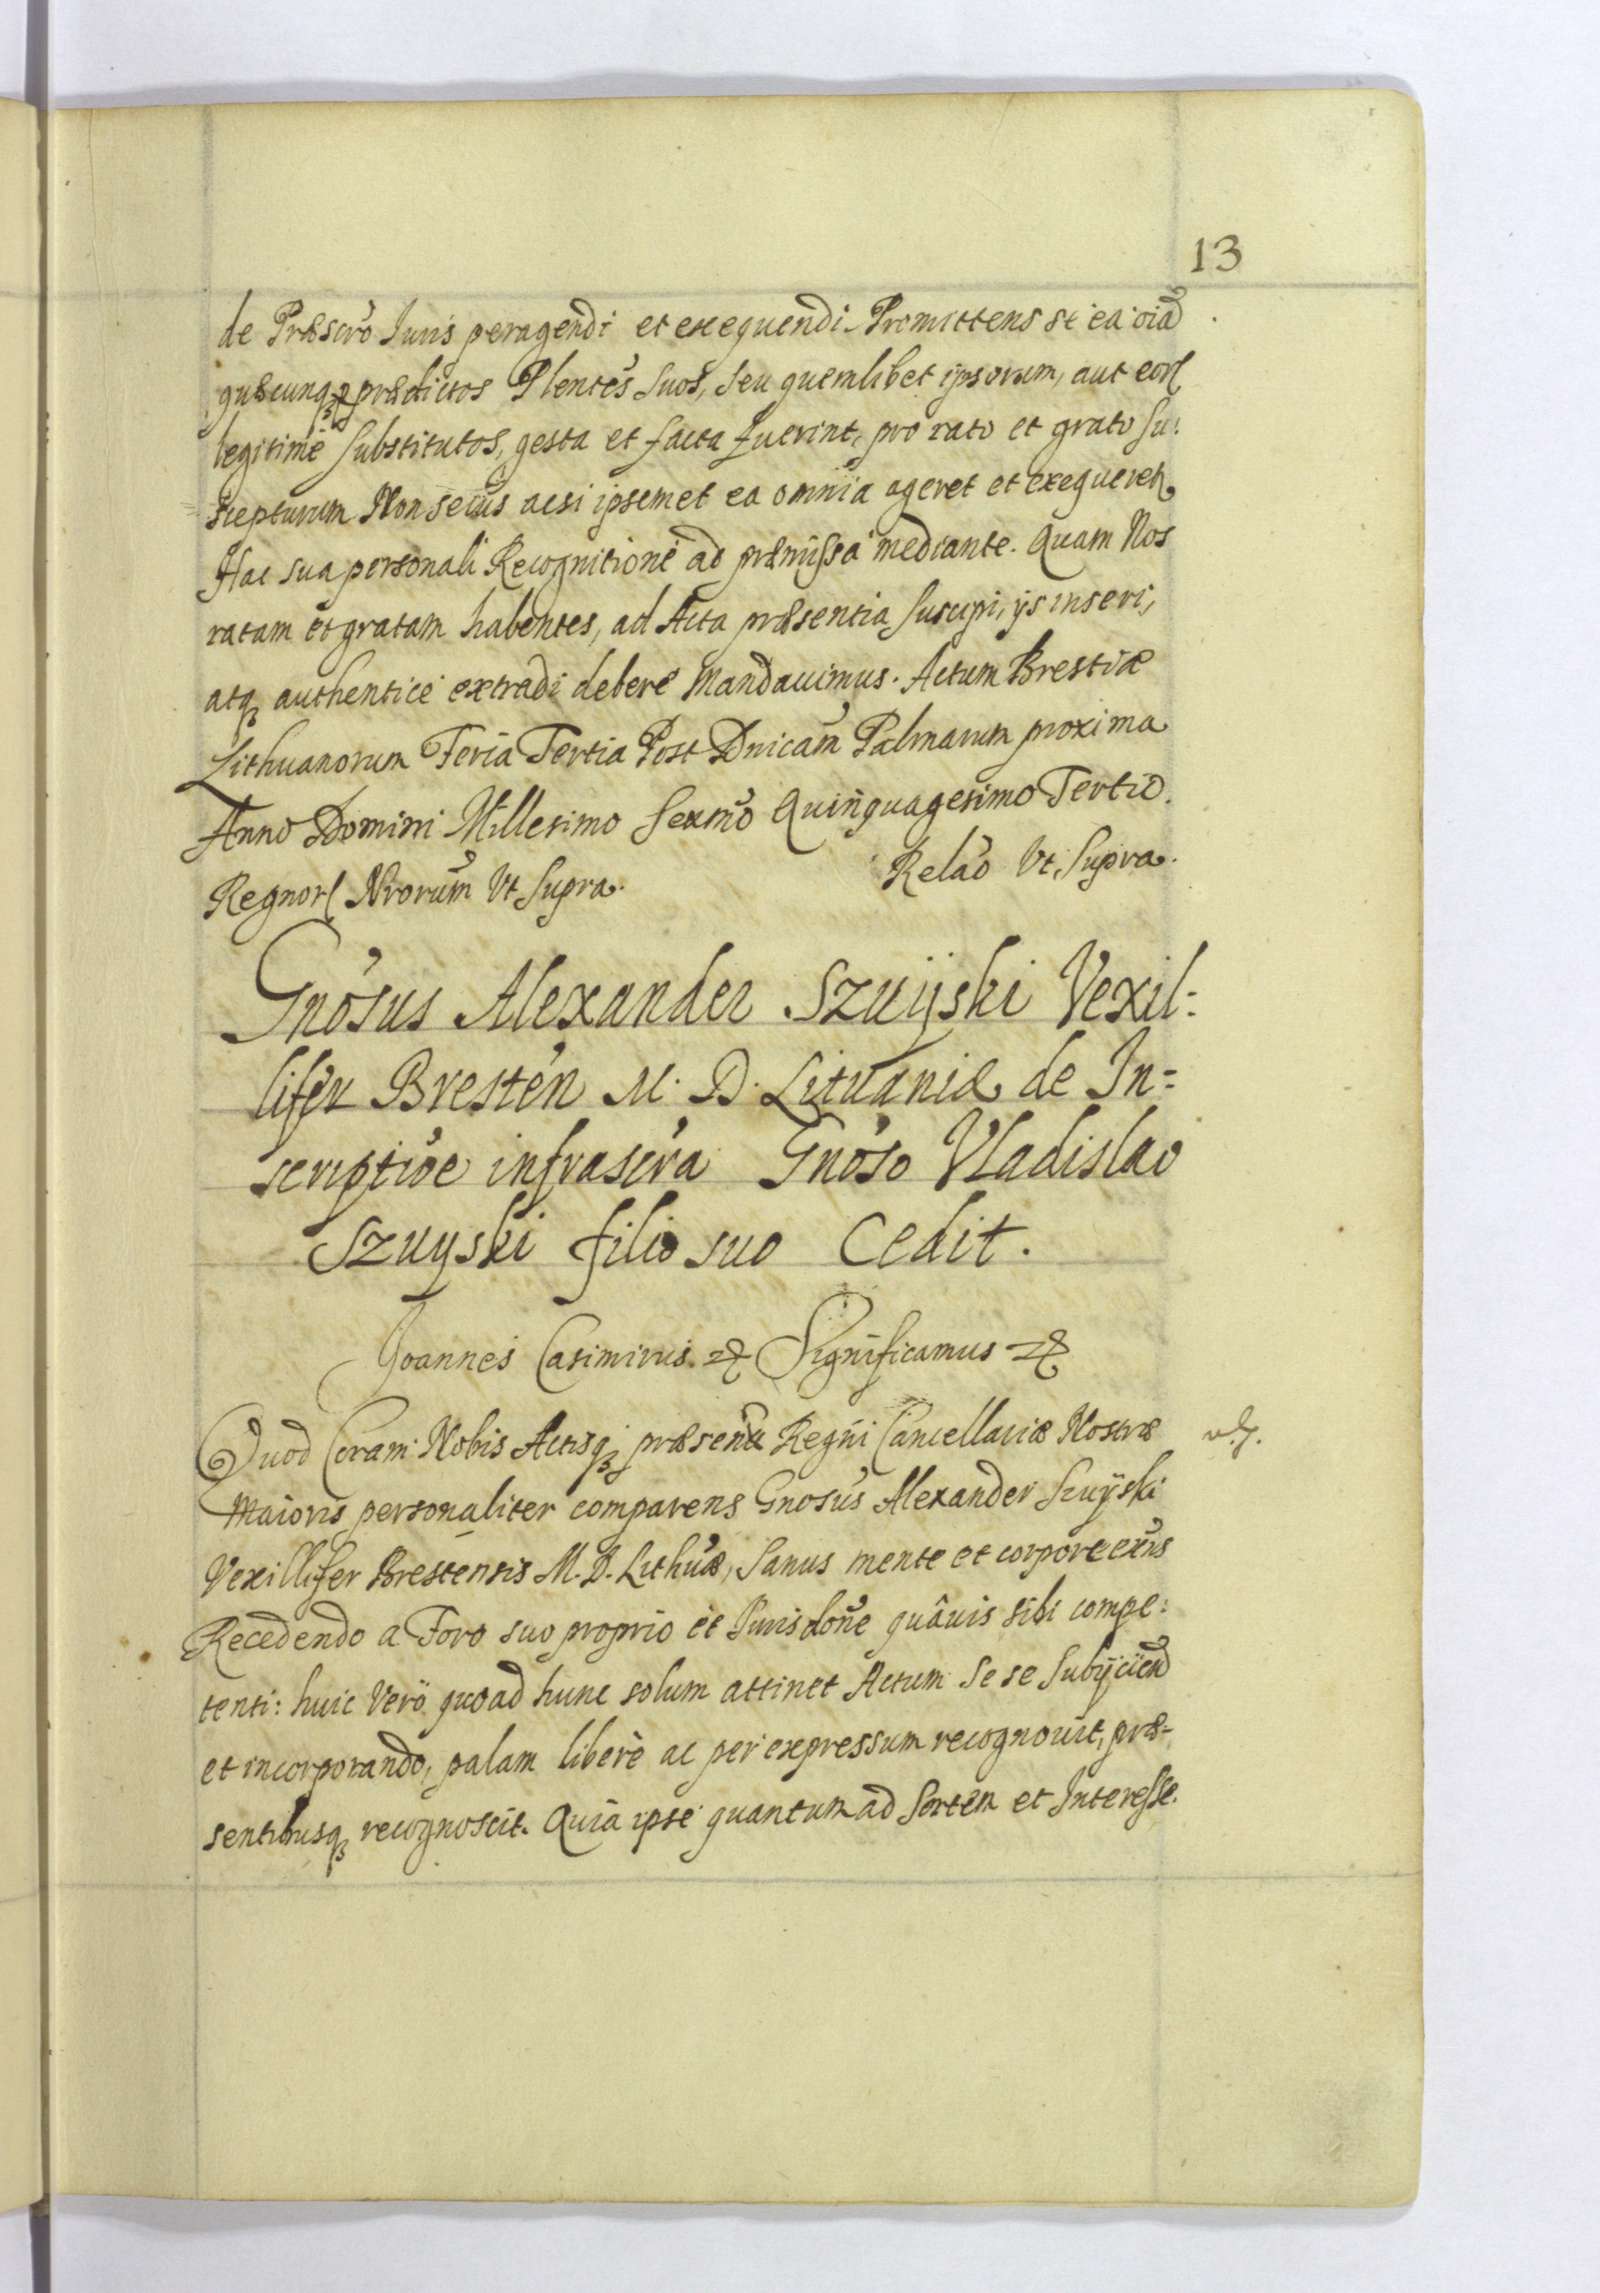 13
de Præscr̃o Iuris peragendi et exequendi. Promittens se ea oĩa
quæcunqꝫ per prædictos Plentes̃ suos, seu quemlibet ipsorum, aut eorꝝ
legitime substitutos, gesta et facta fuerint, pro rato et grato su:
scepturum Non secus acsi ipsemet ea omnia ageret et exequeret̃
Hac sua personali Recognitione ad præmissa mediante. Quam Nos
ratam et gratam habentes, ad Acta præsentia suscipi, ijs inseri,
atqꝫ authentice extradi debere Mandauimus. Actum Brestiæ
Lithuanorum Feria Tertia Post Dnicam̃ Palmarum proxima
Anno Domini Millesimo Sexm̃o Quinquagesimo Tertio.
Regnorꝝ Nrorum̃ Vt Supra. Relaõ Vt Supra.
Gnosũs Alexander Szuijski Vexil=
lifer Bresteñ M. D. Lituaniæ de In=
scriptiõe infrascrã Gnosõ Vladislao
Szuyski filio suo Cedit.
Joannes Casimirus ꝛc Significamus ꝛc
Quod Coram Nobis Actisqꝫ præsentt̃ Regni Cancellariæ Nostræ
Maioris personaliter comparens Gnosũs Alexander Szuÿski
Vexillifer Brestensis M. D. Lithuæ̃, Sanus mente et corpore exñs
Recedendo a Foro suo proprio et Jurisdoñe quâuis sibi compe:
tenti: huic Verò quoad hunc solum attinet Actum Se se subÿciend̃
et incorporando, palam liberè ac per expressum recognouit, præ-
sentibusqꝫ recognoscit. Quia ipse quantum ad Sortem et Interesse.